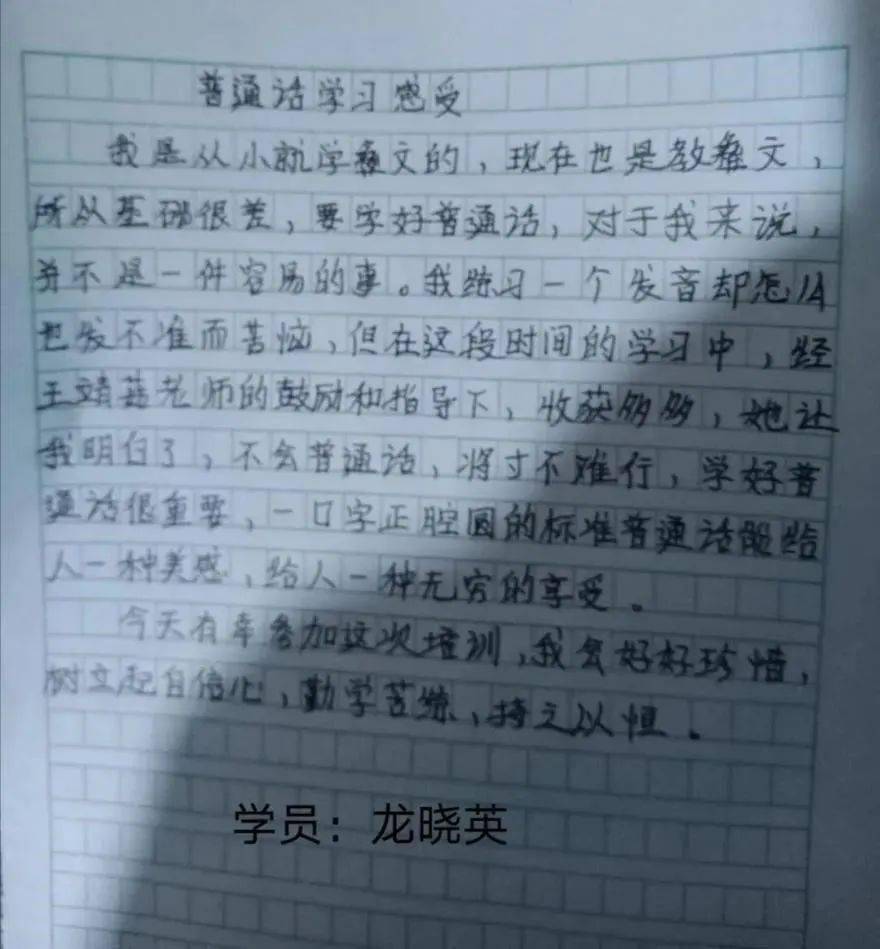 普通话学习感受
我是从小就学彝文的，现在也是教彝文，
所从基础很差，要学好普通话，对于我来说，
并不是一件容易的事。我练习一个发音却怎么
也发不准而苦恼，但在这段时间的学习中，经
王靖老师的鼓励和指导下，收获多多，她让
我明白了，不会普通话，将寸不难行，学好普
通话很重要，一口字正腔圆的标准普通话能给
人一种美感，给人一种无穷的享受。
今天有幸参加这次培训，我会好好珍惜，
树立起自信心，勤学苦练，持之以恒。
学员：龙晓英